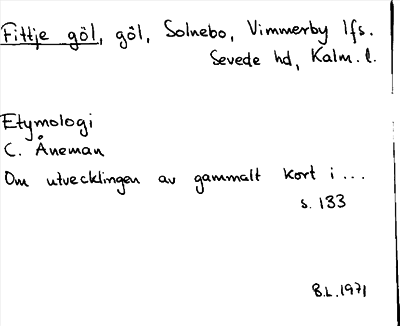 Fittje göl, göl, Solnebo, Vimmerby lfs.
Sevede hd, Kalm. l.
Etymologi
C. Åneman
Om utvecklingen av gammalt kort i ...
s. 133
B.L. 1971